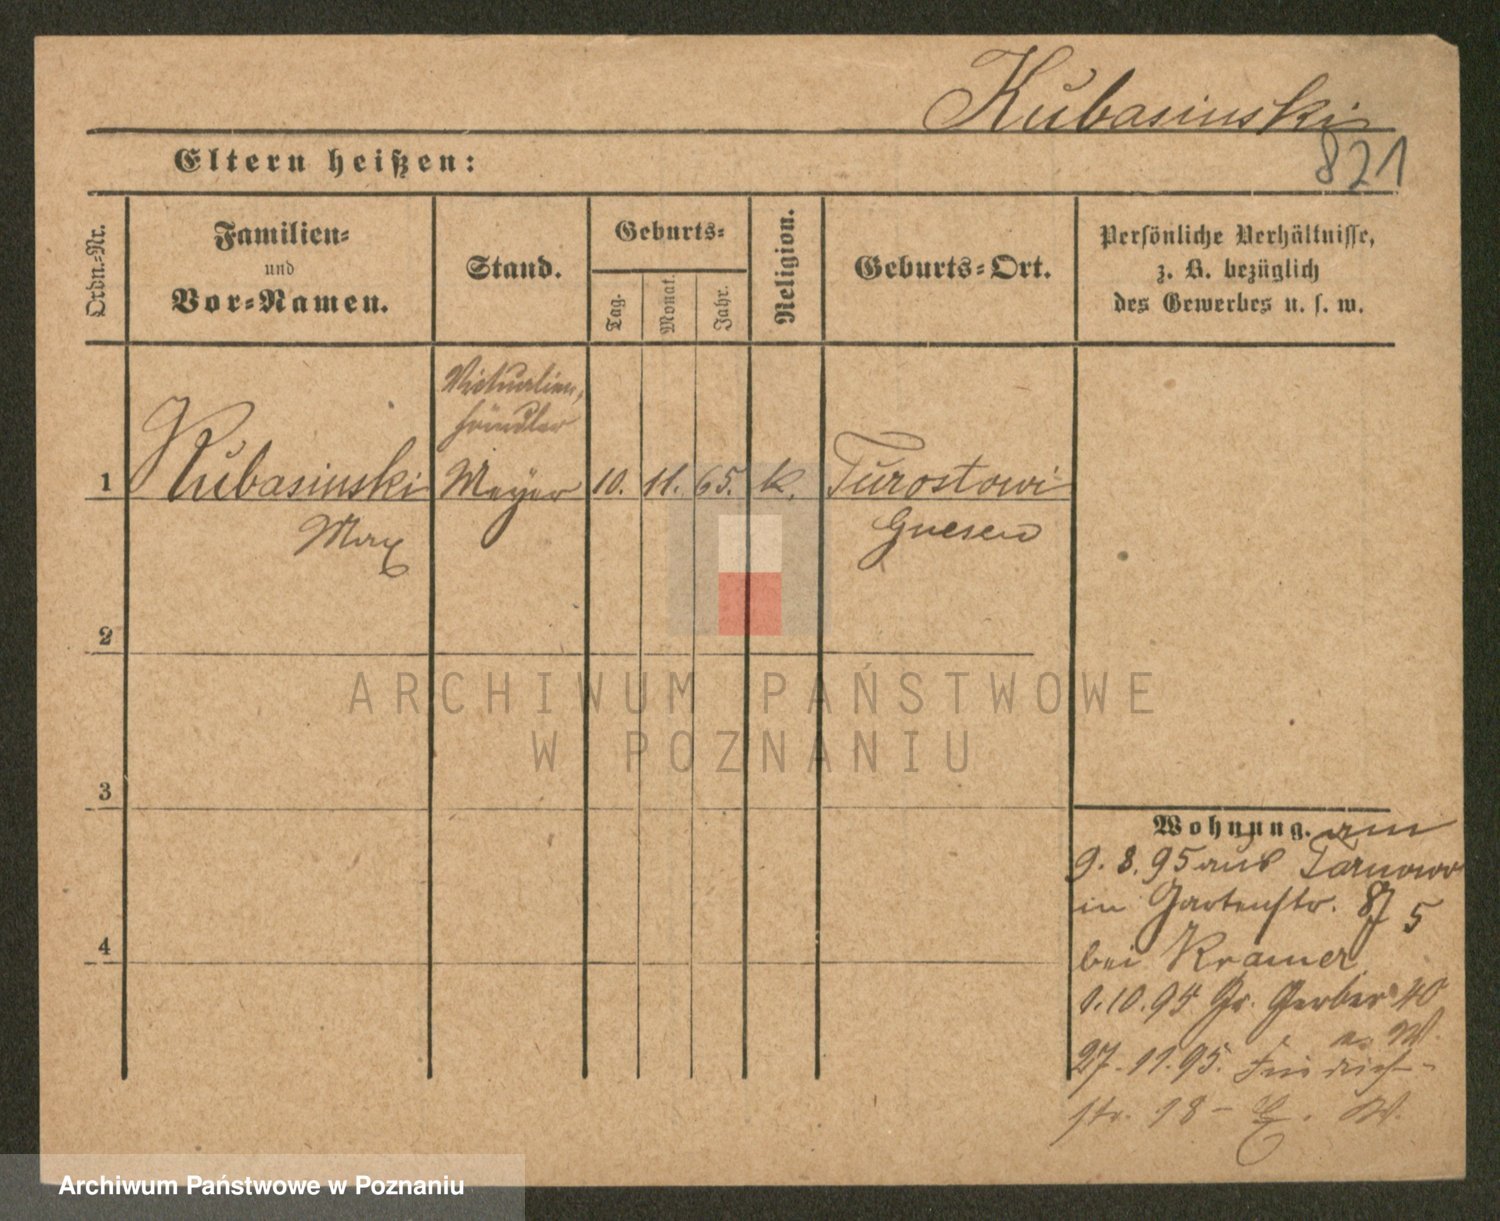 Kubasinski
821
Eltern heißen:
Ordn.-Nr.
Familien-
und
Vor-Namen.
Stand.
Geburts-
Tag.
Monat.
Jahr.
Religion.
Geburts-Ort.
Persönliche Verhältnisse,
z. B. bezüglich
des Gewerbes u. s. w.
Victualien,
händler
1 Kubasinski Meyer 10. 11. 65. k. Turostowi
Max Gnesen
2
3
4
Wohnung. am
9. 8. 95 aus Tarnowo
in Gartenstr. 8 5
bei Kramer
1. 10. 95 Gr. Gerber 40
W.
27. 11. 95. Friedrich-
str. 18 - W.
ARCHIWUM PAŃSTWOWE
W POZNANIU
Archiwum Państwowe w Poznaniu